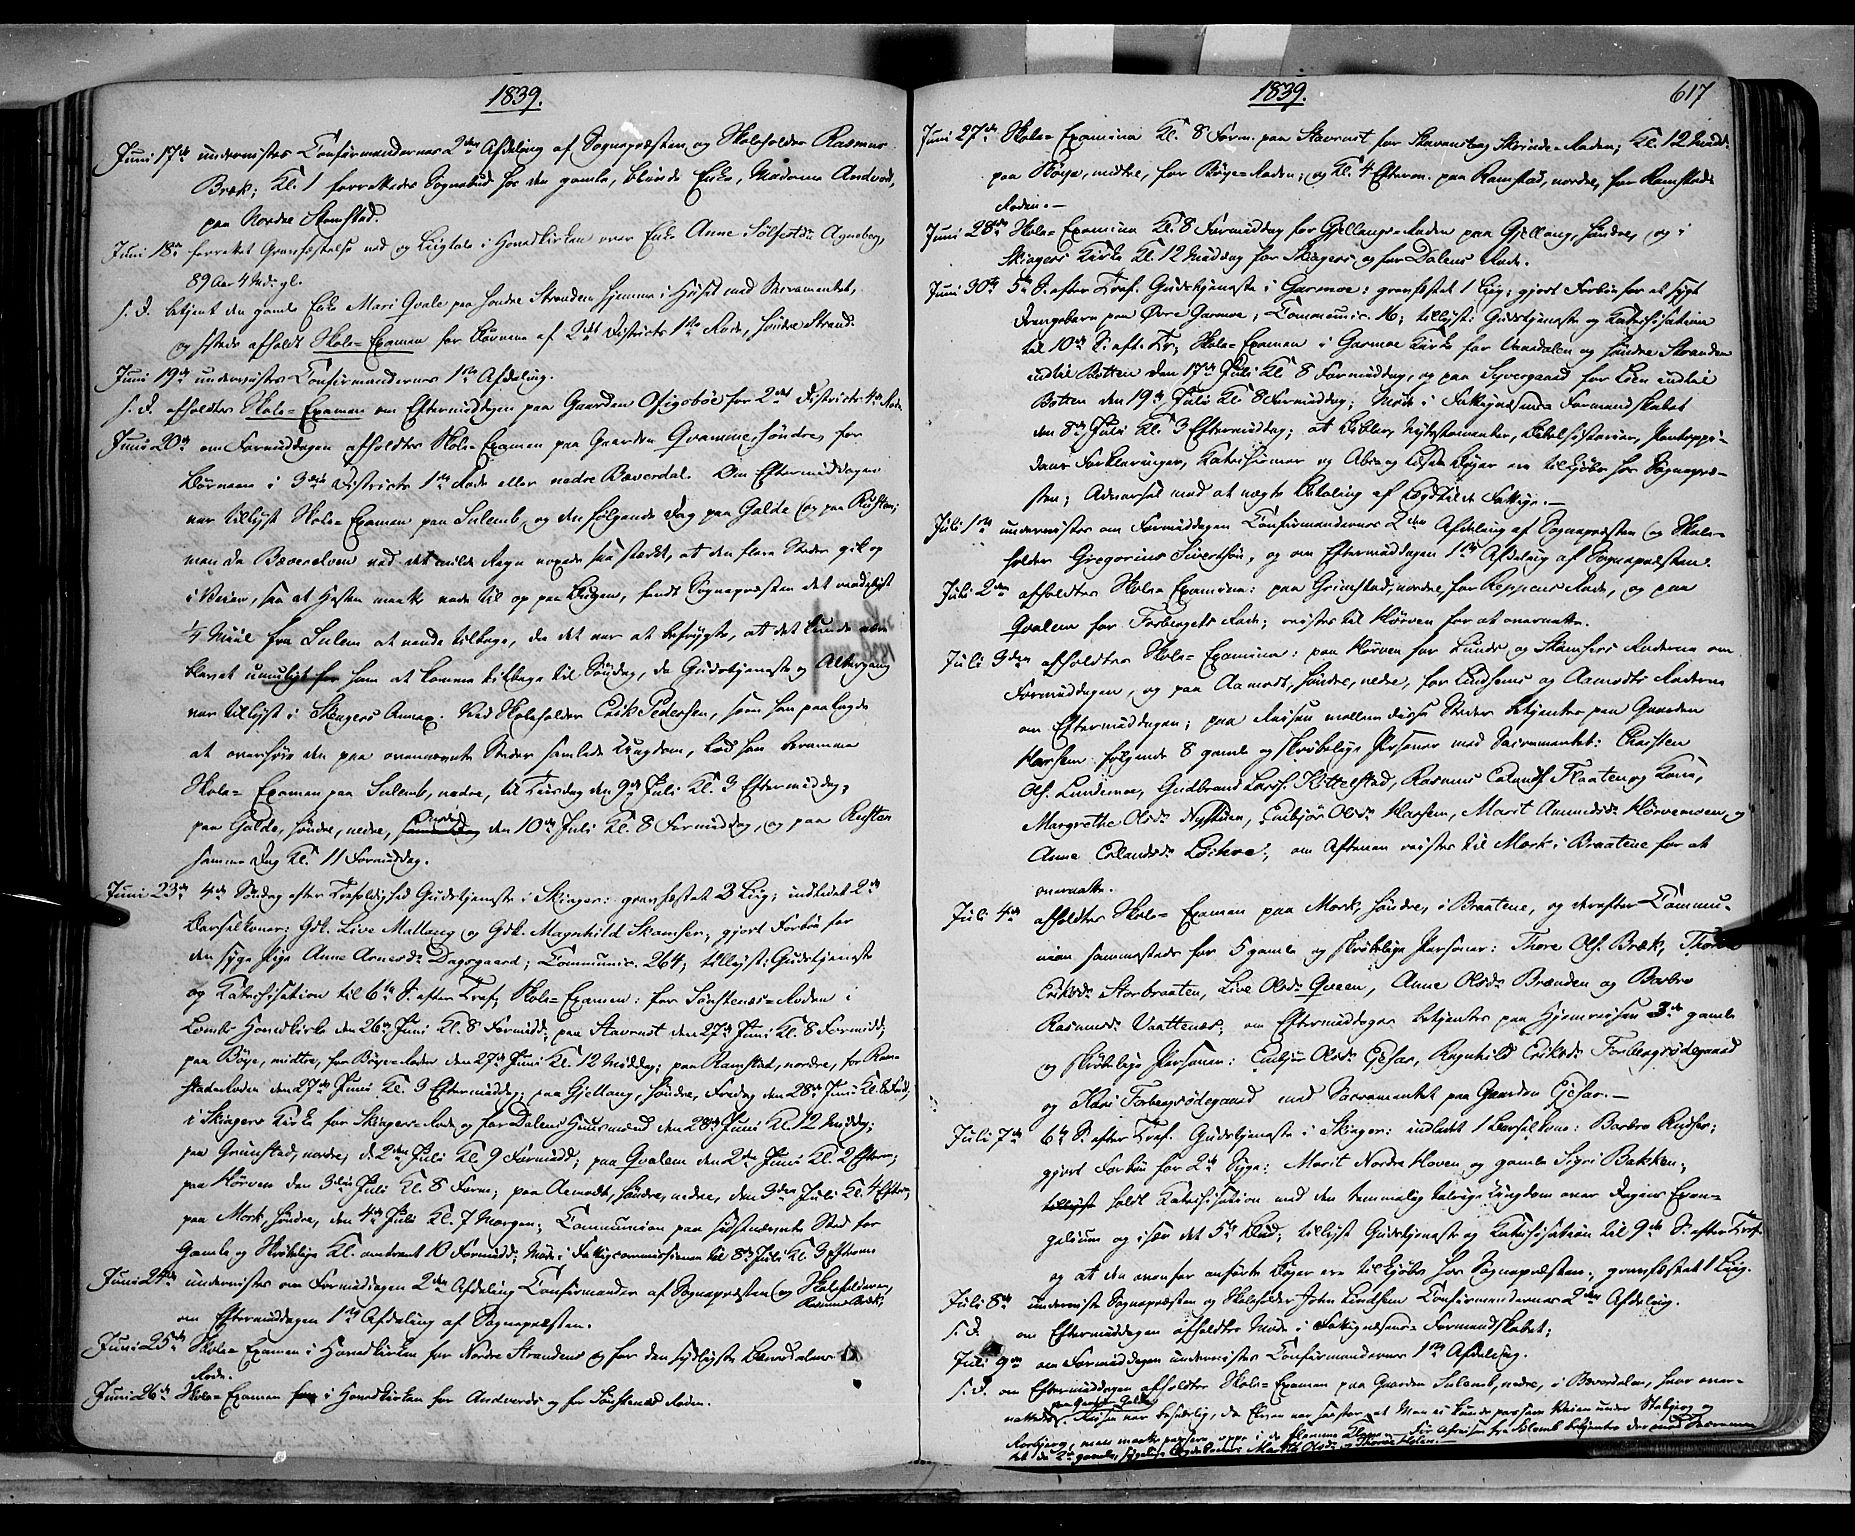 1839.
Juni 17de underviistes Confirmandernes 2den Afdeling af Sognepræsten og Skoleholder Rasmus
Bræk; Kl. 1 forrettedes Sognebud hos den gamle, blinde Enke, Madame Andvord,
paa Nordre Ramstad.
Juni 18de forrettet Gravfæstelse ved og Liigtale i Hovedkirken over Enke Anne Sølfestdr. Agneberg,
89 Aar 4 Md. gl.
s. D. betjent den gamle Enke Mari Qvale paa søndre Stranden hjemme i Huset med Sacramentet,
og sstds afholdt Skole-Examen for Børnene af 2det Districts 1ste Rode, søndre Strand.
Juni 19de underviistes Confirmandernes 1ste Afdeling.
s. D. afholdtes Skole-Examen om Eftermiddagen paa Gaarden for 2det Districts 4de Rode.
Juni 20de om Formiddagen afholdtes Skole-Examen paa Gaarden Qvamme, søndre, for
Børnene i 3die Districts 1ste Rode eller nedre Bæverdal. Om Eftermiddagen
var tillyst Skole-Examen paa Sulemb, og den følgende Dag paa Galde og paa Rusten;
men da Bæverelven ved det milde Regn voxede saa stærkt, at den flere Steder gik op
i Veien, saa at Hesten maatte vade til op paa Bugen, fandt Sognepræsten det raadeligst
1/4 Miil fra Sulem at vende tilbage, da det var at befrygte, at det kunde være
blevet umuligt for ham at komme tilbage til Søndag, da Gudstjeneste og Altergang
var tillyst i Skeagers Annex. Ved Skoleholder Erik Pedersen, som han paalagde
at overhøre den paa ovennævnte Steder samlede Ungdom, lod han beramme
Skole-Examen paa Sulemb, nedre, til Tirsdag den 9de Juli Kl. 3 Eftermiddag,
paa Galde, søndre, nedre, Onsdag den 10de Juli Kl. 8 Formiddag, og paa Rusten
samme Dag Kl. 11 Formiddag.
Juni 23de 4de Søndag efter Trefoldighed Gudstjeneste i Skiager: gravfæstet 3 Liig; indledet 2de
Barselkoner: Gdk. Live Mallang og Gdk. Magnhild Skamser; gjort Forbøn for
den syge Pige Anne Arnesdr. Dagsgaard; Communic. 264; tillyst: Gudstjeneste
og Katechisation til 6te S. efter Tref., Skole-Examen: for Sønstenes-Roden i
Lomb Hovedkirke den 26de Juni Kl. 8 Formidd; paa Stavrust den 27de Juni Kl. 8 Formidd;
paa Bøye, midtre, for Bøye-Roden den 27de Juni Kl. 12 Middag; paa Ramstad, nordre, for Ram-
stads-Roden den 27de Juni Kl. 3 Eftermiddag; paa Gjellang, søndre, Fredag den 28de Juni Kl. 8
i Skiagers Kirke for Skiagers-Rode og for Dalens Huusmænd den 28de Juni Kl. 12 Middag;
paa Grimstad, nordre, d. 2den Juli Kl. 9 Formidd; paa Qvalem den 2den Juli Kl. 2 Efterm;
paa Hørven den 3die Juli Kl. 8 Form; paa Aamodt, søndre, nedre, den 3die Juli Kl. 4 Efterm;
paa Mork, søndre, den 4de Juli Kl. 7 Morgen; Communion paa sidstnævnte Sted for
Gamle og Skrøbelige Kl. omtrent 10 Formidd; Møde i Fattigcommissionen til 8de Juli Kl. 3 Efterm
Juni 24de underviistes om Formiddagen 2den Afdeling Confirmander af Sognepræsten og Skoleholderen
Rasmus Bræk;
om Eftermiddagen 1ste Afdeling af Sognepræsten.
Juni 25de Skole-Examen i Hovedkirken for Nordre Strandens og for den sydligste Bæverdalens
Rode.
Juni 26de Skole-Examen i Hovedkirken for Andvords og for Sønstenes Roder.
1839.
617
Juni 27de Skole-Examina Kl. 8 Form. paa Stavrust for Stavrust og Skrinde-Roden; Kl. 12 Midd.
paa Bøye, midtre, for Bøye-Roden; og Kl. 4 Efterm. paa Ramstad, nordre, for Ramstads
Roden.—
Juni 28de Skole-Examina Kl. 8 Formiddag for Gjellangs-Roden paa Gjellang, søndre, og i
Skiagers Kirke Kl. 12 Middag for Skiagers og for Dalens Rode.
Juni 30de 5te S. efter Tref. Gudstjeneste i Garmoe: gravfæstet 1 Liig; gjort Forbøn for et sygt
Drengebarn paa Øvre Garmoe; Communic. 16; tillyst: Gudstjeneste og Katechisation
til 10de S. eft. Tr; Skole-Examen i Garmoe Kirke for Vaardalen og søndre Stranden
indtil Botten den 17de Juli Kl. 8 Formiddag, og paa Syvergaard for Leen indtil
Botten den 19de Juli Kl. 8 Formiddag; Møde i Fattigvæsens-Formandskabet
den 8de Juli Kl. 3 Eftermiddag; at Bibler, Nytestamenter, Bibelhistorier, Pontoppi-
dans Forklaringer, Katechismer og Abc og tilstede Bøger ere tilkjøbs hos Sognepræ-
sten; Advarsel mod at nægte Betaling af Tilskud til de Fattige.—
Juli 1ste underviistes om Formiddagen Confirmandernes 2den Afdeling af Sognepræsten og Skole-
holder Gregorius Sivertsøn, og om Eftermiddagen 1ste Afdeling af Sognepræsten.
Juli 2den afholdtes Skole-Examina: paa Grimstad, nordre, for Reppens Rode, og paa
Qvalem for Forbergets Rode; reistes til Hørven for at overnatte.
Juli 3die afholdtes Skole-Examina: paa Hørven for Lunde og Skamsers Roderne om
Formiddagen, og paa Aamodt, søndre, nedre, for Lindsems og Aamodts Roderne
om Eftermiddagen; paa Reisen mellem disse Steder betjentes paa Gaarden
Harsem følgende 8 gamle og skrøbelige Personer med Sacramentet: Christen
Ols. Lundemoe, Gudbrand Lars. Kittelstad, Rasmus Erlands. Flaaten og Kone,
Margrethe Olsdr. Nystuen, Embjør Olsdr. Harsem, Marit Amundsdr. Hørvenoen, og
Anne Erlandsdr. Løkre; om Aftenen reistes til Mork i Braatene for at
overnatte.
Juli 4de afholdtes Skole-Examen paa Mork, søndre, i Braatene, og derefter Commu-
nion sammesteds for 5 gamle og skrøbelige Personer: Thore Ols. Bræk,
Eriksdr. Storbraaten, Live Olsdr. Queen, Anne Olsdr. Brænden og Barbro
Rasmusdr. Vaattenæs; om Eftermiddagen betjentes paa Hjemreisen 3de gamle
og skrøbelige Personer: Embjør Olsdr. Ejesar, Ragnhild Eriksdr. Forbergsødegaard
og Kari Forbergsødegaard med Sacramentet paa Gaarden Ejesar.—
Juli 7de 6te S. efter Tref. Gudstjeneste i Skiager: indledet 1 Barselkone: Barbro Rudser;
gjort Forbøn for 2de Syge: Marit Nordre Hoven og gamle Sigri Bakken;
tillyst holdt Katechisation med den temmelig talrige Ungdom over Dagens Evan-
gelium og især det 5te Bud; tillyst Gudstjeneste og Katechisation til 9de S. efter Tref.
og at den ovenfor anførte Bøger ere tilkjøbs hos Sognepræsten; gravfæstet 1 Liig.
Juli 8de underviiste Sognepræsten og Skoleholder John Lindsem Confirmandernes 2den Afdeling.
s. D. om Eftermiddagen afholdtes Møde i Fattigvæsens-Formandskabet;
Juli 9de om Formiddagen underviistes Confirmandernes 1ste Afdeling.
s. D. om Eftermiddagen afholdtes Skole-Examen paa Gaarden Sulemb, nedre, i Bæverdalen, hvor over-
nattedes paa Gaarden Galde. Reisen var besværlig, da Elven var saa stor, at man ei kunde passere Veien under Stabjerg og
Aarbjerg, men maatte passere oppe i de slemme Klemmer. Før Afreisen fra Sulemb betjentes der med Sacramen
tet de 2de gamle, Marith Olsdr. og Thorø Holen.—